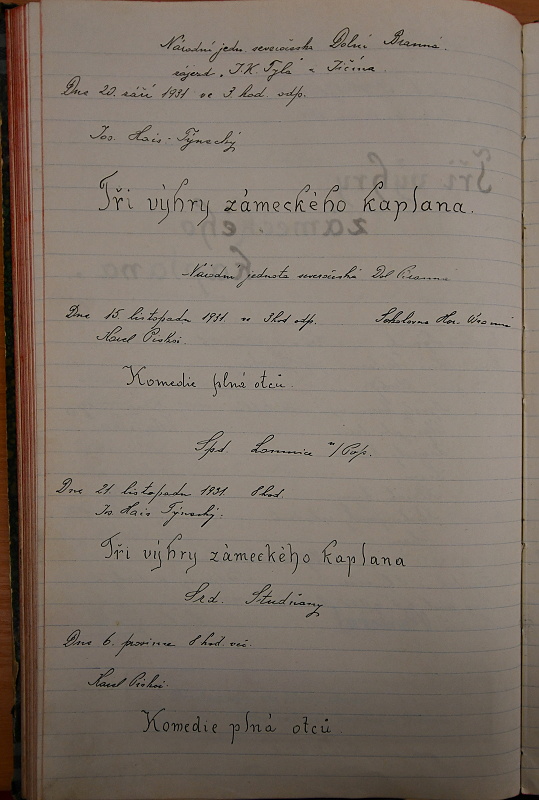 Národní jedn. severočeská Dolní Branná.
zájezd "J.K. Tylá" z Jičína.
Dne 20. září 1931 ve 3 hod. odp.
Jos. Hais-Týnecký
Tři výhry zámeckého kaplana.
Národní jednota severočeská Dol Branná
Dne 15. listopadu 1931. ve 3 hod odp. Sokolovna Hor. Branná
Karel Piskoř.
Komedie plná otců.
Spd. Lomnice n/Pop.
Dne 21. listopadu 1931. 8 hod.
Jos. Hais Týnecký.
Tři výhry zámeckého kaplana
Srd. Studňany
Dne 6. prosince 8 hod. več.
Karel Piskoř.
Komedie plná otců